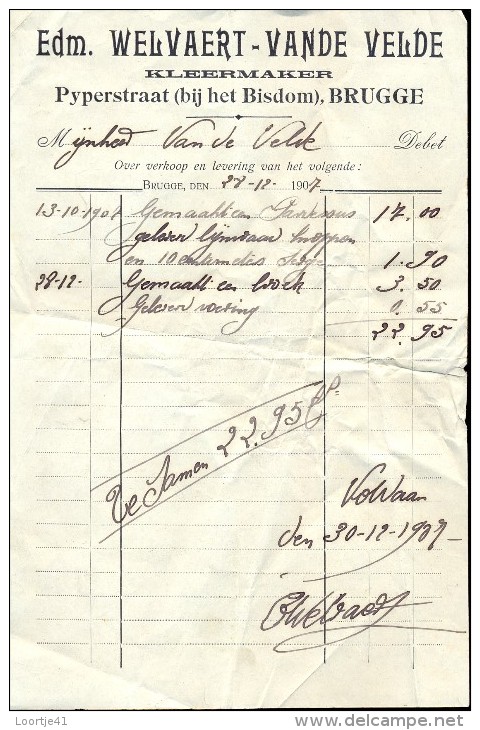 Edm. WELVAERT-VANDE VELDE
KLEERMAKER
Pyperstraat (bij het Bisdom), BRUGGE
Mijnheer Van de Velde Debet
Over verkoop en levering van het volgende:
BRUGGE, DEN 28-12- 1907
13-10-1907 Gemaakt een 17.00
gelever lijnwaar knoppen
en 10 centimetes 1.90
28-12- Gemaakt een broek 3.50
Gelever voering 0.55
22.95
Te Samen 22.95 fr
Voldaan
den 30-12-1907-
EWelvaert
Loortje41
www.delcampe.net